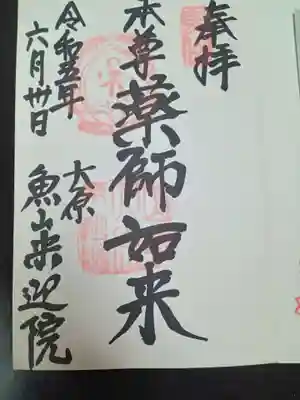 奉拝
本尊薬師如来
大原
魚山来迎院
令和五年
六月卅日